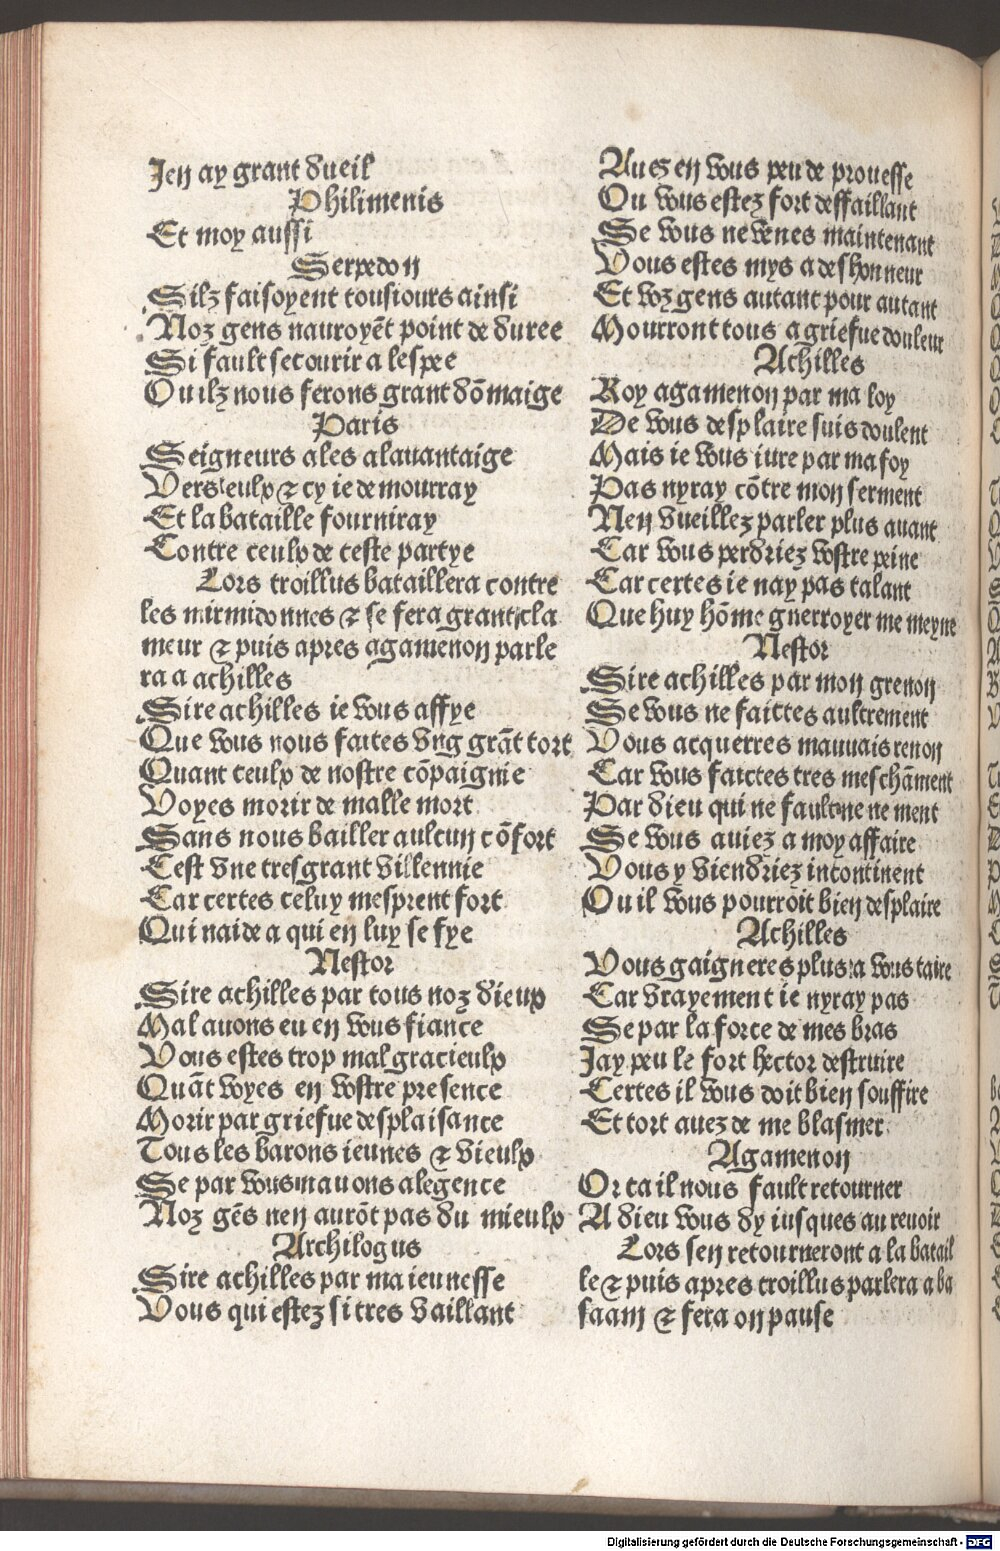 Jen ay grant dueil
Philimenis
Et moy aussi
Serpedon
Silz faisoyent tousiours ainsi
Noz gens nauroyēt point de duree
Si fault secourir a lespee
Ou ilz nous ferons grant dōmaige
Paris
Seigneurs ales alauantaige
Vers ceulx & cy ie demourray
Et la bataille fourniray
Contre ceulx de ceste partye
Lors troillus bataillera contre
les mirmidonnes & se fera grant cla
meur & puis apres agamenon parle
ra a achilles
Sire achilles ie vous affye
Que vous nous faites vng grāt tort
Quant ceulx de nostre cōpaignie
Voyes morir de malle mort
Sans nous bailler aulcun cōfort
Cest vne tresgrant villennie
Car certes celuy mesprent fort
Qui naide a qui en luy se fye
Nestor
Sire achilles par tous noz dieux
Mal auons eu en vous fiance
Vous estes trop mal gracieulx
Quāt voyes en vostre presence
Morir par griefue desplaisance
Tous les barons ieunes & vieulx
Se par vous nauons alegence
Noz gēs nen aurōt pas du mieulx
Archilogus
Sire achilles par ma ieunesse
Vous qui estez si tres vaillant
Auez en vous peu de prouesse
Ou vous estez fort deffaillant
Se vous ne venes maintenant
Vous estes mys a deshonneur
Et voz gens autant pour autant
Mourront tous a griefue douleur
Achilles
Roy agamenon par ma loy
De vous desplaire suis doulent
Mais ie vous iure par ma foy
Pas nyray cōtre mon serment
Nen vueillez parler plus auant
Car vous perdriez vostre peine
Car certes ie nay pas talant
Que huy hōme guerroyer me meyne
Nestor
Sire achilles par mon grenon
Se vous ne faictes aultrement
Vous acquerres mauuais renon
Car vous faictes tres meschāment
Par dieu qui ne fault ne ne ment
Se vous auiez a moy affaire
Vous y viendriez incontinent
Ou il vous pourroit bien desplaire
Achilles
Vous gaigneres plus a vous taire
Car vrayement ie nyray pas
Se par la force de mes bras
Jay peu le fort hector destruire
Certes il vous doit bien souffire
Et tort auez de me blasmer
Agamenon
Or ca il nous fault retourner
A dieu vous dy iusques au reuoir
Lors sen retourneront a la batail
le & puis apres troillus parlera a ba
saan & fera on pause
Digitalisierung gefördert durch die Deutsche Forschungsgemeinschaft - DFG